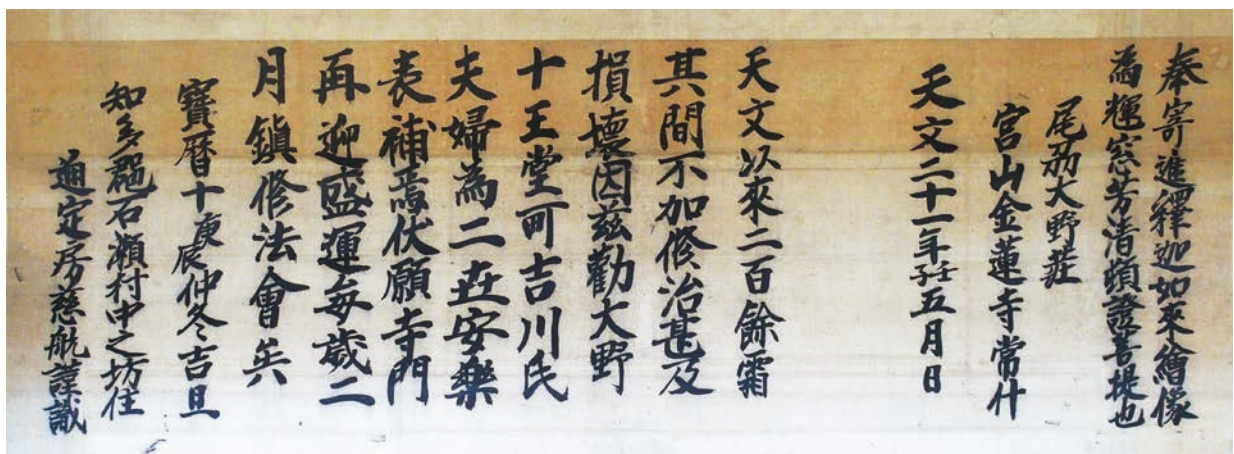 奉寄進釋迦如來繪像
為琁窓芳清頓證菩提也
尾刕大野莊
宮山金蓮寺常什
天文二十一年壬子五月日
天文以來二百餘霜
其間不加修治甚及
損壞因茲勸大野
十王堂町吉川氏
夫婦為二世安樂
表補焉伏願寺門
再迎盛運每歲二
月鎮修法會矣
寶曆十庚辰仲冬吉旦
知多郡石瀬村中之坊住
通定房慈航謹識